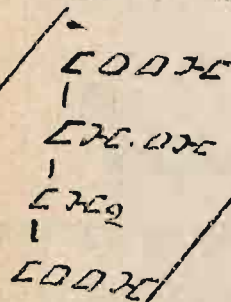 COOH
CH.OH
CH2
COOH